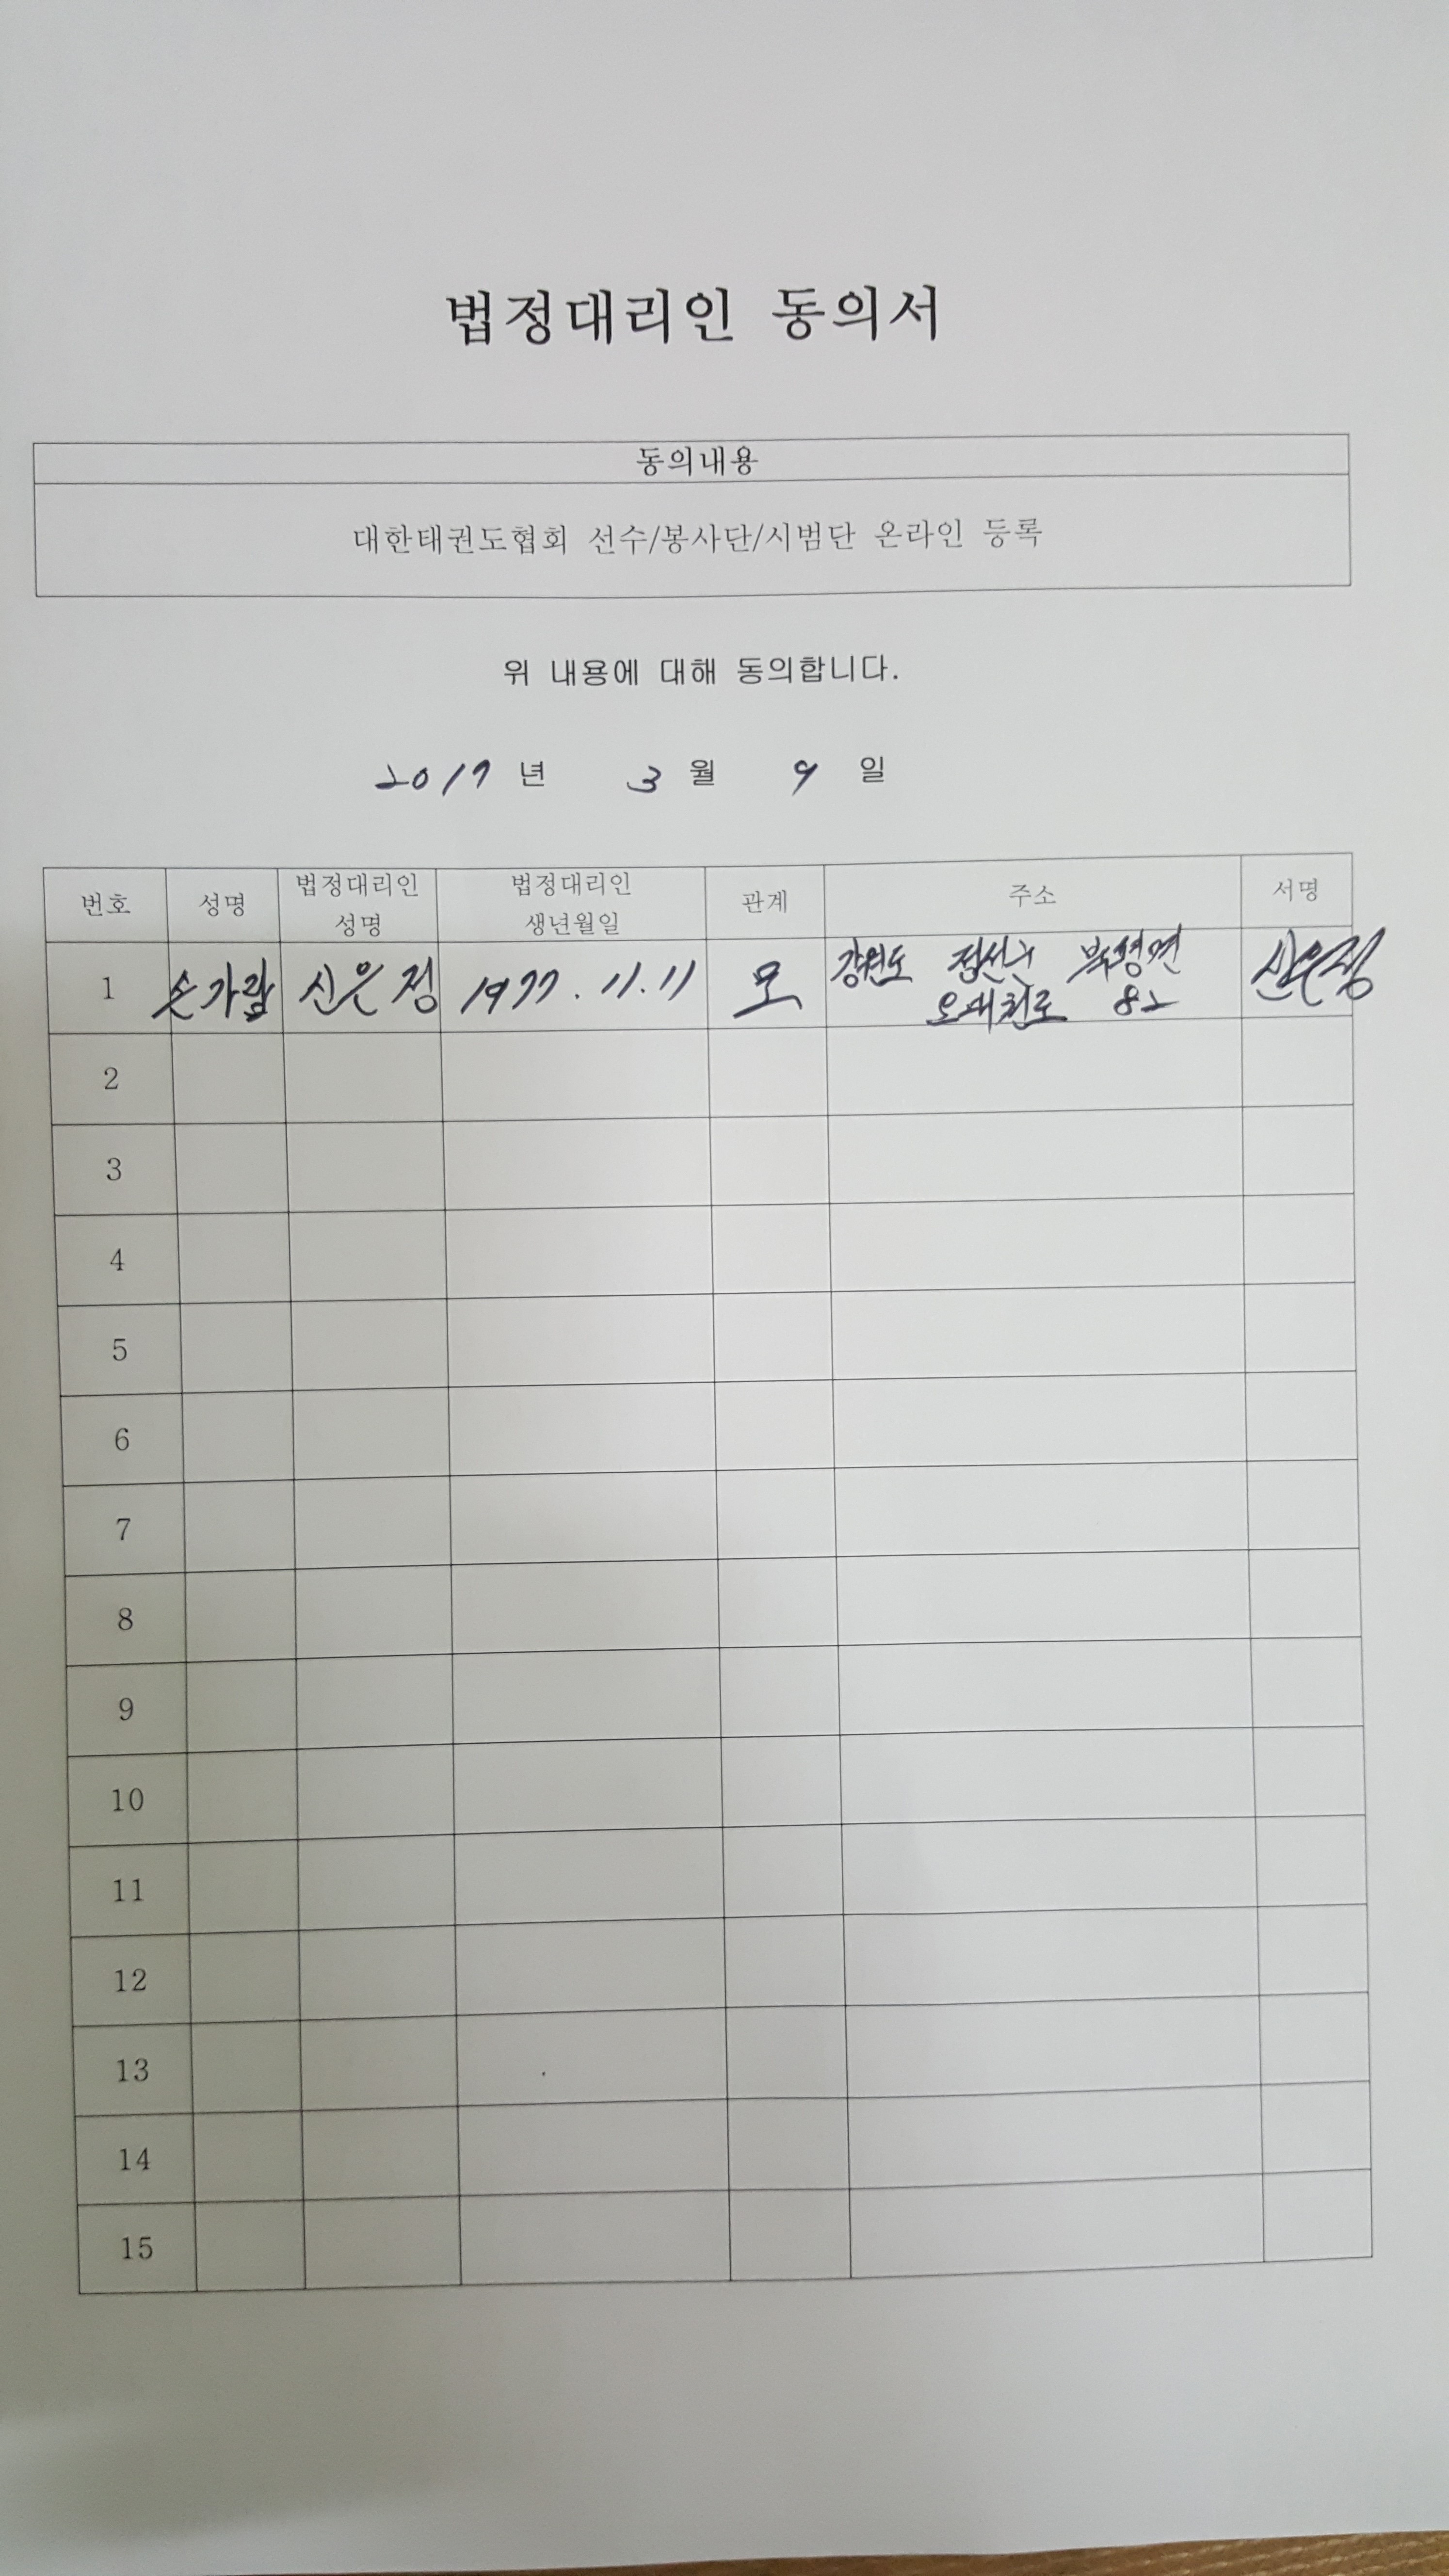 법정대리인 동의서
동의내용
대한태권도협회 선수/봉사단/시범단 온라인 등록
위 내용에 대해 동의합니다.
2017 년 3 월 9 일
번호 성명 법정대리인 성명 법정대리인 생년월일 관계 주소 서명
1 손가람 신은정 1977. 11. 11 모 강원도 정선군 북평면 신은정
오대천로 82
2
3
4
5
6
7
8
9
10
11
12
13
14
15